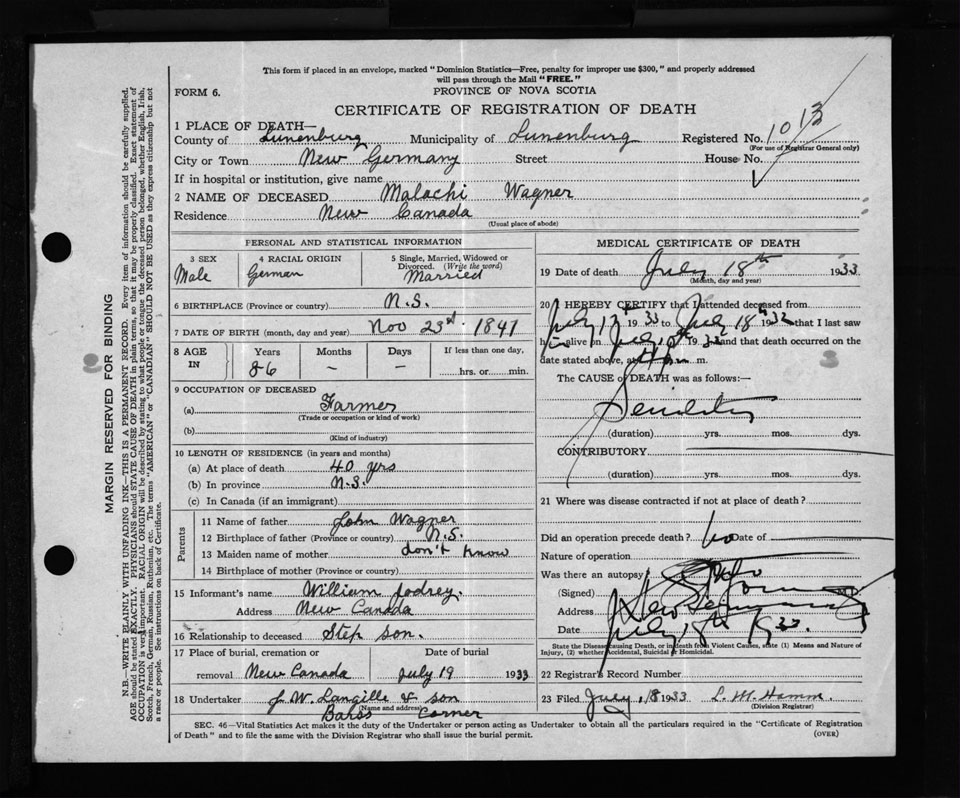 This form if placed in an envelope, marked "Dominion Statistics—Free, penalty for improper use $300," and properly addressed
will pass through the Mail "FREE."
FORM 6.
PROVINCE OF NOVA SCOTIA
CERTIFICATE OF REGISTRATION OF DEATH
1 PLACE OF DEATH—
County of Lunenburg Municipality of Lunenburg Registered No. 1013
(For use of Registrar General only)
City or Town New Germany Street House No.
If in hospital or institution, give name
2 NAME OF DECEASED Malachi Wagner
Residence New Canada
(Usual place of abode)
PERSONAL AND STATISTICAL INFORMATION
3 SEX Male
4 RACIAL ORIGIN German
5 Single, Married, Widowed or Divorced. (Write the word) Married
6 BIRTHPLACE (Province or country) N.S.
7 DATE OF BIRTH (month, day and year) Nov 23rd 1847
8 AGE IN Years 86 Months – Days – If less than one day, hrs. or min.
9 OCCUPATION OF DECEASED
(a) Farmer
(Trade or occupation or kind of work)
(b)
(Kind of industry)
10 LENGTH OF RESIDENCE (in years and months)
(a) At place of death 40 yrs
(b) In province N.S.
(c) In Canada (if an immigrant)
Parents
11 Name of father John Wagner
12 Birthplace of father (Province or country) N.S.
13 Maiden name of mother don't know
14 Birthplace of mother (Province or country)
15 Informant's name William Jodrey
Address New Canada
16 Relationship to deceased Step son.
17 Place of burial, cremation or removal New Canada
Date of burial July 19 1933
18 Undertaker J W Langille & son
(Name and address)
Barss Corner
MEDICAL CERTIFICATE OF DEATH
19 Date of death July 18th 1933
(Month, day and year)
20 I HEREBY CERTIFY that I attended deceased from
July 1933 to July 18th 1932 that I last saw
him alive on July 1932 and that death occurred on the
date stated above, at m.
The CAUSE of DEATH was as follows:—
Senility
(duration) yrs. mos. dys.
CONTRIBUTORY
(duration) yrs. mos. dys.
21 Where was disease contracted if not at place of death?
Did an operation precede death? No Date of
Nature of operation
Was there an autopsy? No
(Signed)
Address New Germany
Date July 18th 1933.
State the Disease causing Death, or in death from Violent Causes, state (1) Means and Nature of
Injury, (2) whether Accidental, Suicidal or Homicidal.
22 Registrar's Record Number
23 Filed July 18 1933 L. M. Hamm.
(Division Registrar)
SEC. 46—Vital Statistics Act makes it the duty of the Undertaker or person acting as Undertaker to obtain all the particulars required in the "Certificate of Registration
of Death" and to file the same with the Division Registrar who shall issue the burial permit.
(OVER)
MARGIN RESERVED FOR BINDING
N.B.—WRITE PLAINLY WITH UNFADING INK—THIS IS A PERMANENT RECORD. Every item of information should be carefully supplied.
AGE should be stated EXACTLY. PHYSICIANS should STATE CAUSE OF DEATH in plain terms, so that it may be properly classified. Exact statement of
OCCUPATION is very important. RACIAL ORIGIN will be described by stating to what people or tongue the deceased person belonged, whether English, Irish,
Scotch, French, German, Russian, Ruthenian, etc. The terms "AMERICAN" or "CANADIAN" SHOULD NOT BE USED as they express citizenship but not
a race or people. See instructions on back of Certificate.